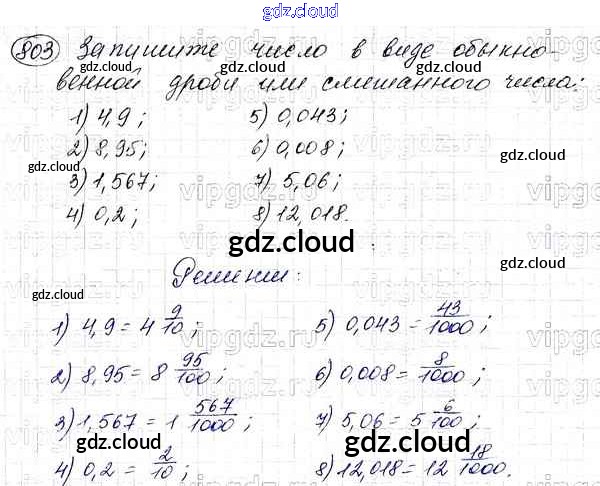 gdz.cloud
803 Запишите число в виде обыкно-
gdz.cloud
венной дроби или смешанного числа:
gdz.cloud gdz.cloud
1) 4,9; 5) 0,043;
gdz.cloud
2) 8,95; 6) 0,008;
gdz.cloud gdz.cloud
3) 1,567; 7) 5,06;
vipgdz.ru
4) 0,2; 8) 12,018.
gdz.cloud gdz.cloud
gdz.cloud gdz.cloud
Решение:
gdz.cloud gdz.cloud
1) 4,9 = 4 9/10; 5) 0,043 = 43/1000;
gdz.cloud
2) 8,95 = 8 95/100; 6) 0,008 = 8/1000;
gdz.cloud gdz.cloud
3) 1,567 = 1 567/1000; 7) 5,06 = 5 6/100;
gdz.cloud gdz.cloud
4) 0,2 = 2/10; 8) 12,018 = 12 18/1000.